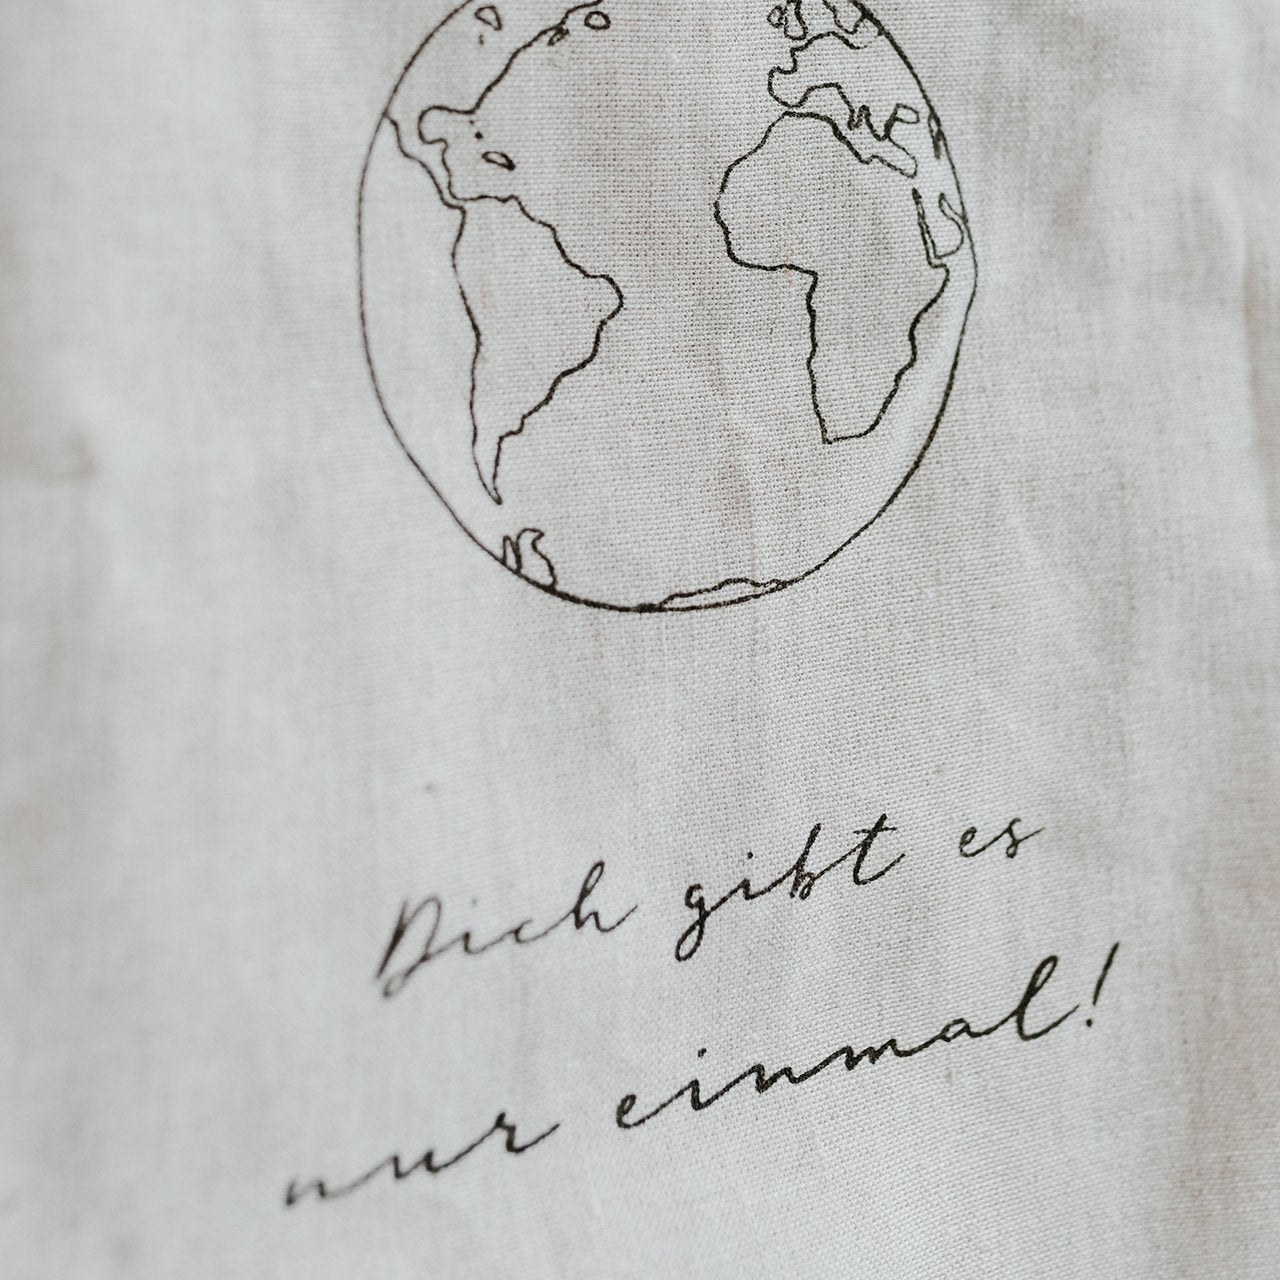 Dich gibt es
nur einmal!